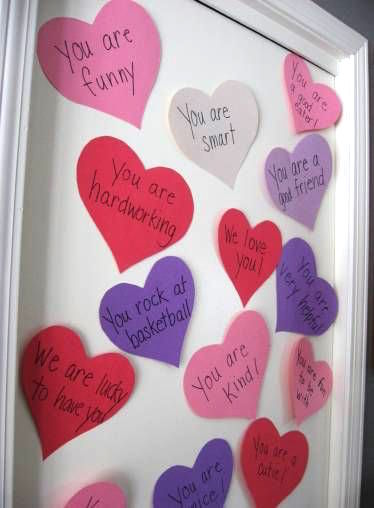 You are
funny
You are
a good
eater!
You are
smart
You are a
good friend
You are
hardworking
We love
you!
You are
very helpful
You rock at
basketball
You are
Kind!
We are lucky
to have you
You are fun
to be
with
You are a
cutie!
You are
nice!